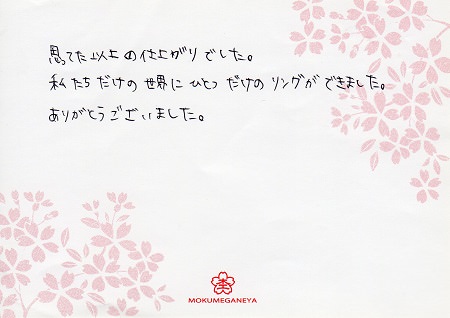 思てた以上の仕上がりでした。
私たちだけの世界にひとつだけのリングができました。
ありがとうございました。
MOKUMEGANEYA